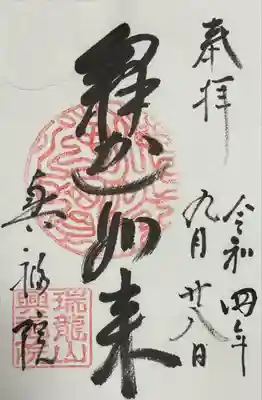 奉拝
令和四年
九月廿八日
釈迦如来
興福院
瑞龍山
興福院